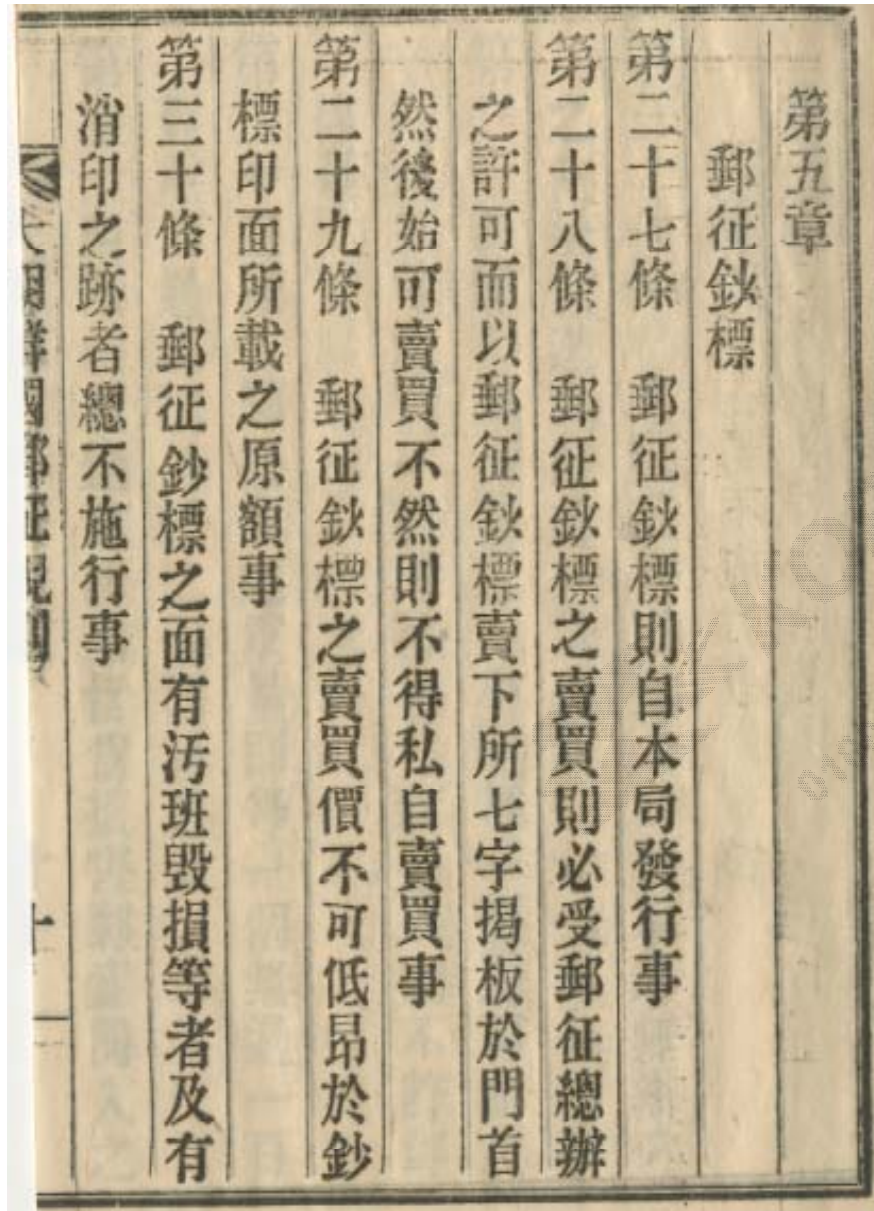 第五章
郵征鈔標
第二十七條 郵征鈔標則自本局發行事
第二十八條 郵征鈔標之賣買則必受郵征總辦
之許可而以郵征鈔標賣下所七字揭板於門首
然後始可賣買不然則不得私自賣買事
第二十九條 郵征鈔標之賣買價不可低昂於鈔
標印面所載之原額事
第三十條 郵征鈔標之面有汚班毀損等者及有
消印之跡者總不施行事
大朝鮮國郵征規則
十